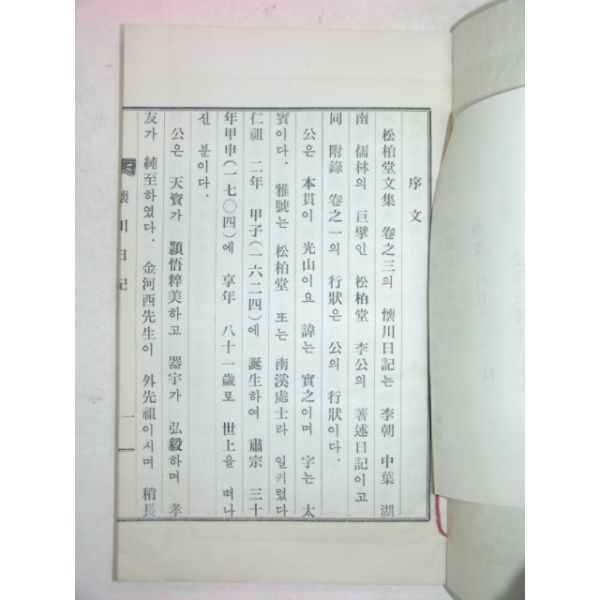 序文
松柏堂文集 卷之三의 懷川日記는 李朝 中葉 湖
南 儒林의 巨擘인 松柏堂 李公의 著述日記이고
同 附錄 卷之一의 行狀은 公의 行狀이다.
公은 本貫이 光山이요 諱는 實之이며 字는 太
賓이다. 雅號는 松柏堂 또는 南溪處士라 일커렀다
仁祖 二年 甲子(一六二四)에 誕生하여 肅宗 三十
年甲申(一七〇四)에 享年 八十一歲로 世上을 떠나
신 분이다.
公은 天資가 顥悟粹美하고 器宇가 弘毅하며 孝
友가 純至하였다. 金河西先生이 外先祖이시며 稍長
懷川日記
一